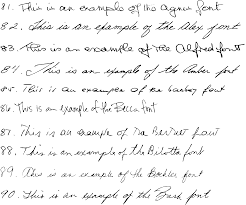 81. This is an example of the Agnes font
82. This is an example of the Alex font
83. This is an example of the Alfred font
84. This is an example of the Amber font
85. This is an example of the font
86. This is an Example of the Becca font
87. This is an example of the font
88. This is an example of the Bilotta font
89. This is an example of the font
90. This is an example of the Bush font